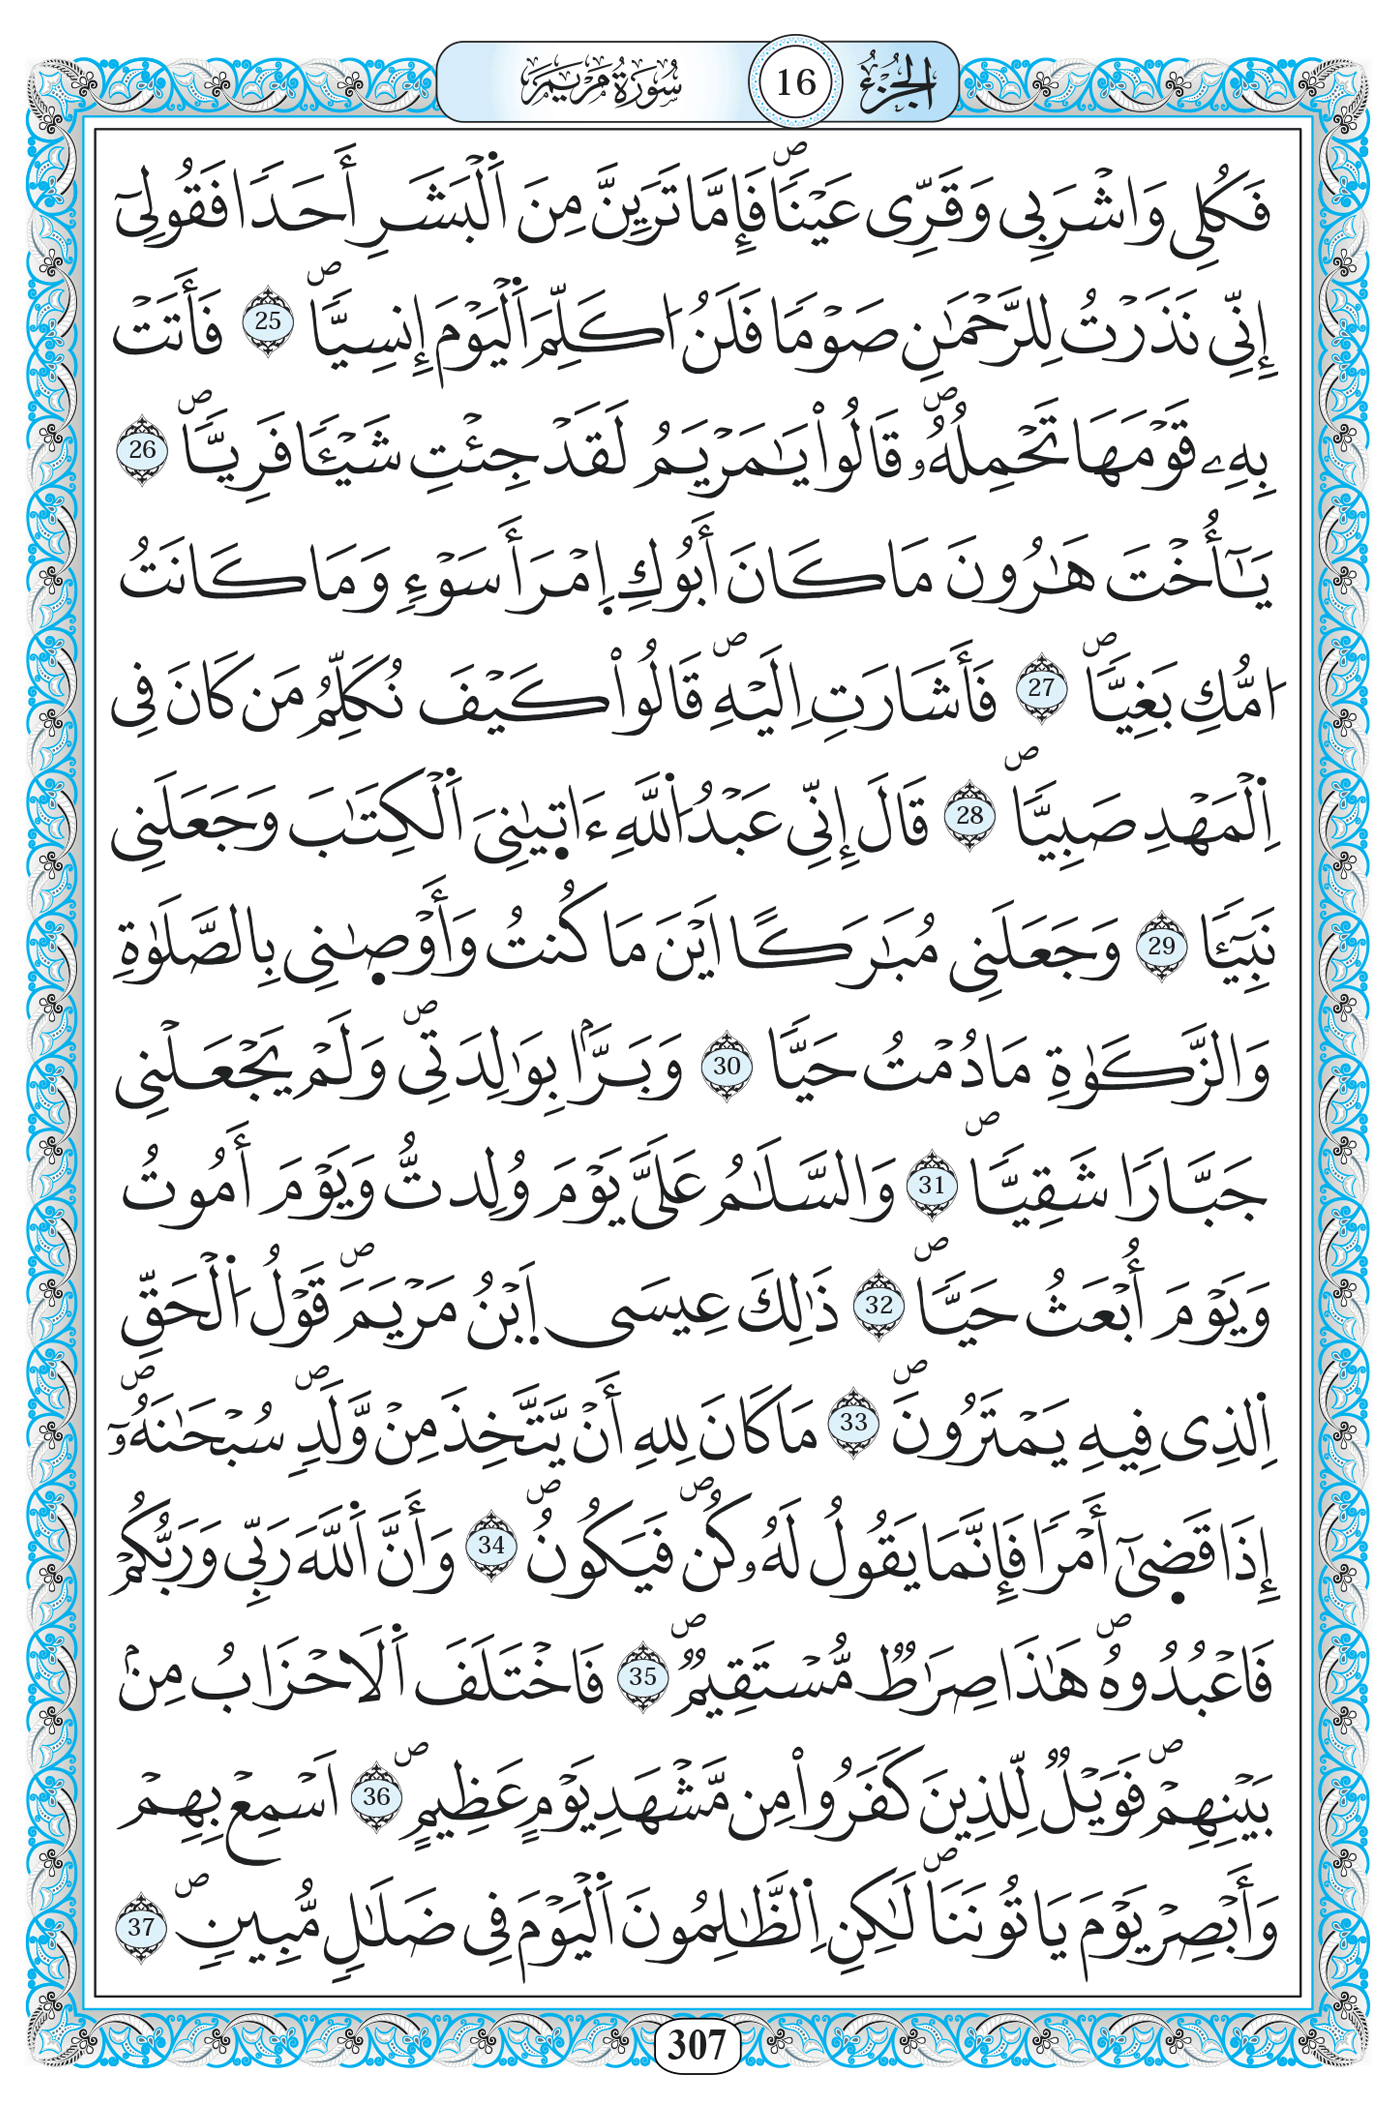 الجزء 16 سورة مريم
فَكُلِي وَاشْرَبِي وَقَرِّي عَيْنٗاۖ فَإِمَّا تَرَيِنَّ مِنَ اَ۬لْبَشَرِ أَحَدٗا فَقُولِيٓ
إِنِّي نَذَرْتُ لِلرَّحْمَٰنِ صَوْماٗ فَلَنُ ا۟كَلِّمَ اَ۬لْيَوْمَ إِنسِيّاٗۖ 25 فَأَتَتْ
بِهِۦ قَوْمَهَا تَحْمِلُهُۥۖ قَالُواْ يَٰمَرْيَمُ لَقَدْ جِئْتِ شَيْـٔٗا فَرِيّاٗۖ 26
يَٰٓأُخْتَ هَٰرُونَ مَا كَانَ أَبُوكِ اِ۪مْرَأَ سَوْءٖ وَمَا كَانَتُ
ا۟مُّكِ بَغِيّاٗۖ 27 فَأَشَارَتِ اِلَيْهِۖ قَالُواْ كَيْفَ نُكَلِّمُ مَن كَانَ فِي
اِ۬لْمَهْدِ صَبِيّاٗۖ 28 قَالَ إِنِّي عَبْدُ اُ۬للَّهِ ءَات۪يٰنِيَ اَ۬لْكِتَٰبَ وَجَعَلَنِي
نَبِيٓـٔٗا 29 وَجَعَلَنِي مُبَٰرَكًا اَيْنَ مَا كُنتُ وَأَوْصٰ۪نِي بِالصَّلَوٰةِ
وَالزَّكَوٰةِ مَا دُمْتُ حَيّٗا 30 وَبَرَّۢا بِوَٰلِدَتِيۖ وَلَمْ يَجْعَلْنِي
جَبَّارٗا شَقِيّٗاۖ 31 وَالسَّلَٰمُ عَلَيَّ يَوْمَ وُلِدتُّ وَيَوْمَ أَمُوتُ
وَيَوْمَ أُبْعَثُ حَيّٗاۖ 32 ذَٰلِكَ عِيسَى اَ۪بْنُ مَرْيَمَۖ قَوْلُ اُ۬لْحَقِّ
اِ۬لذِي فِيهِ يَمْتَرُونَۖ 33 مَا كَانَ لِلهِ أَنْ يَّتَّخِذَ مِنْ وَّلَدٖۖ سُبْحَٰنَهُۥٓۖ
إِذَا قَض۪ىٰٓ أَمْرٗا فَإِنَّمَا يَقُولُ لَهُۥ كُنۖ فَيَكُونُۖ 34 وَأَنَّ اَ۬للَّهَ رَبِّي وَرَبُّكُمْ
فَاعْبُدُوهُۖ هَٰذَا صِرَٰطٞ مُّسْتَقِيمٞۖ 35 فَاخْتَلَفَ اَ۬لَاحْزَابُ مِنۢ
بَيْنِهِمْۖ فَوَيْلٞ لِّلذِينَ كَفَرُواْ مِن مَّشْهَدِ يَوْمٍ عَظِيمٍۖ 36 اَسْمِعْ بِهِمْ
وَأَبْصِرْ يَوْمَ يَاتُونَنَاۖ لَٰكِنِ اِ۬لظَّٰلِمُونَ اَ۬لْيَوْمَ فِي ضَلَٰلٖ مُّبِينٖۖ 37
307